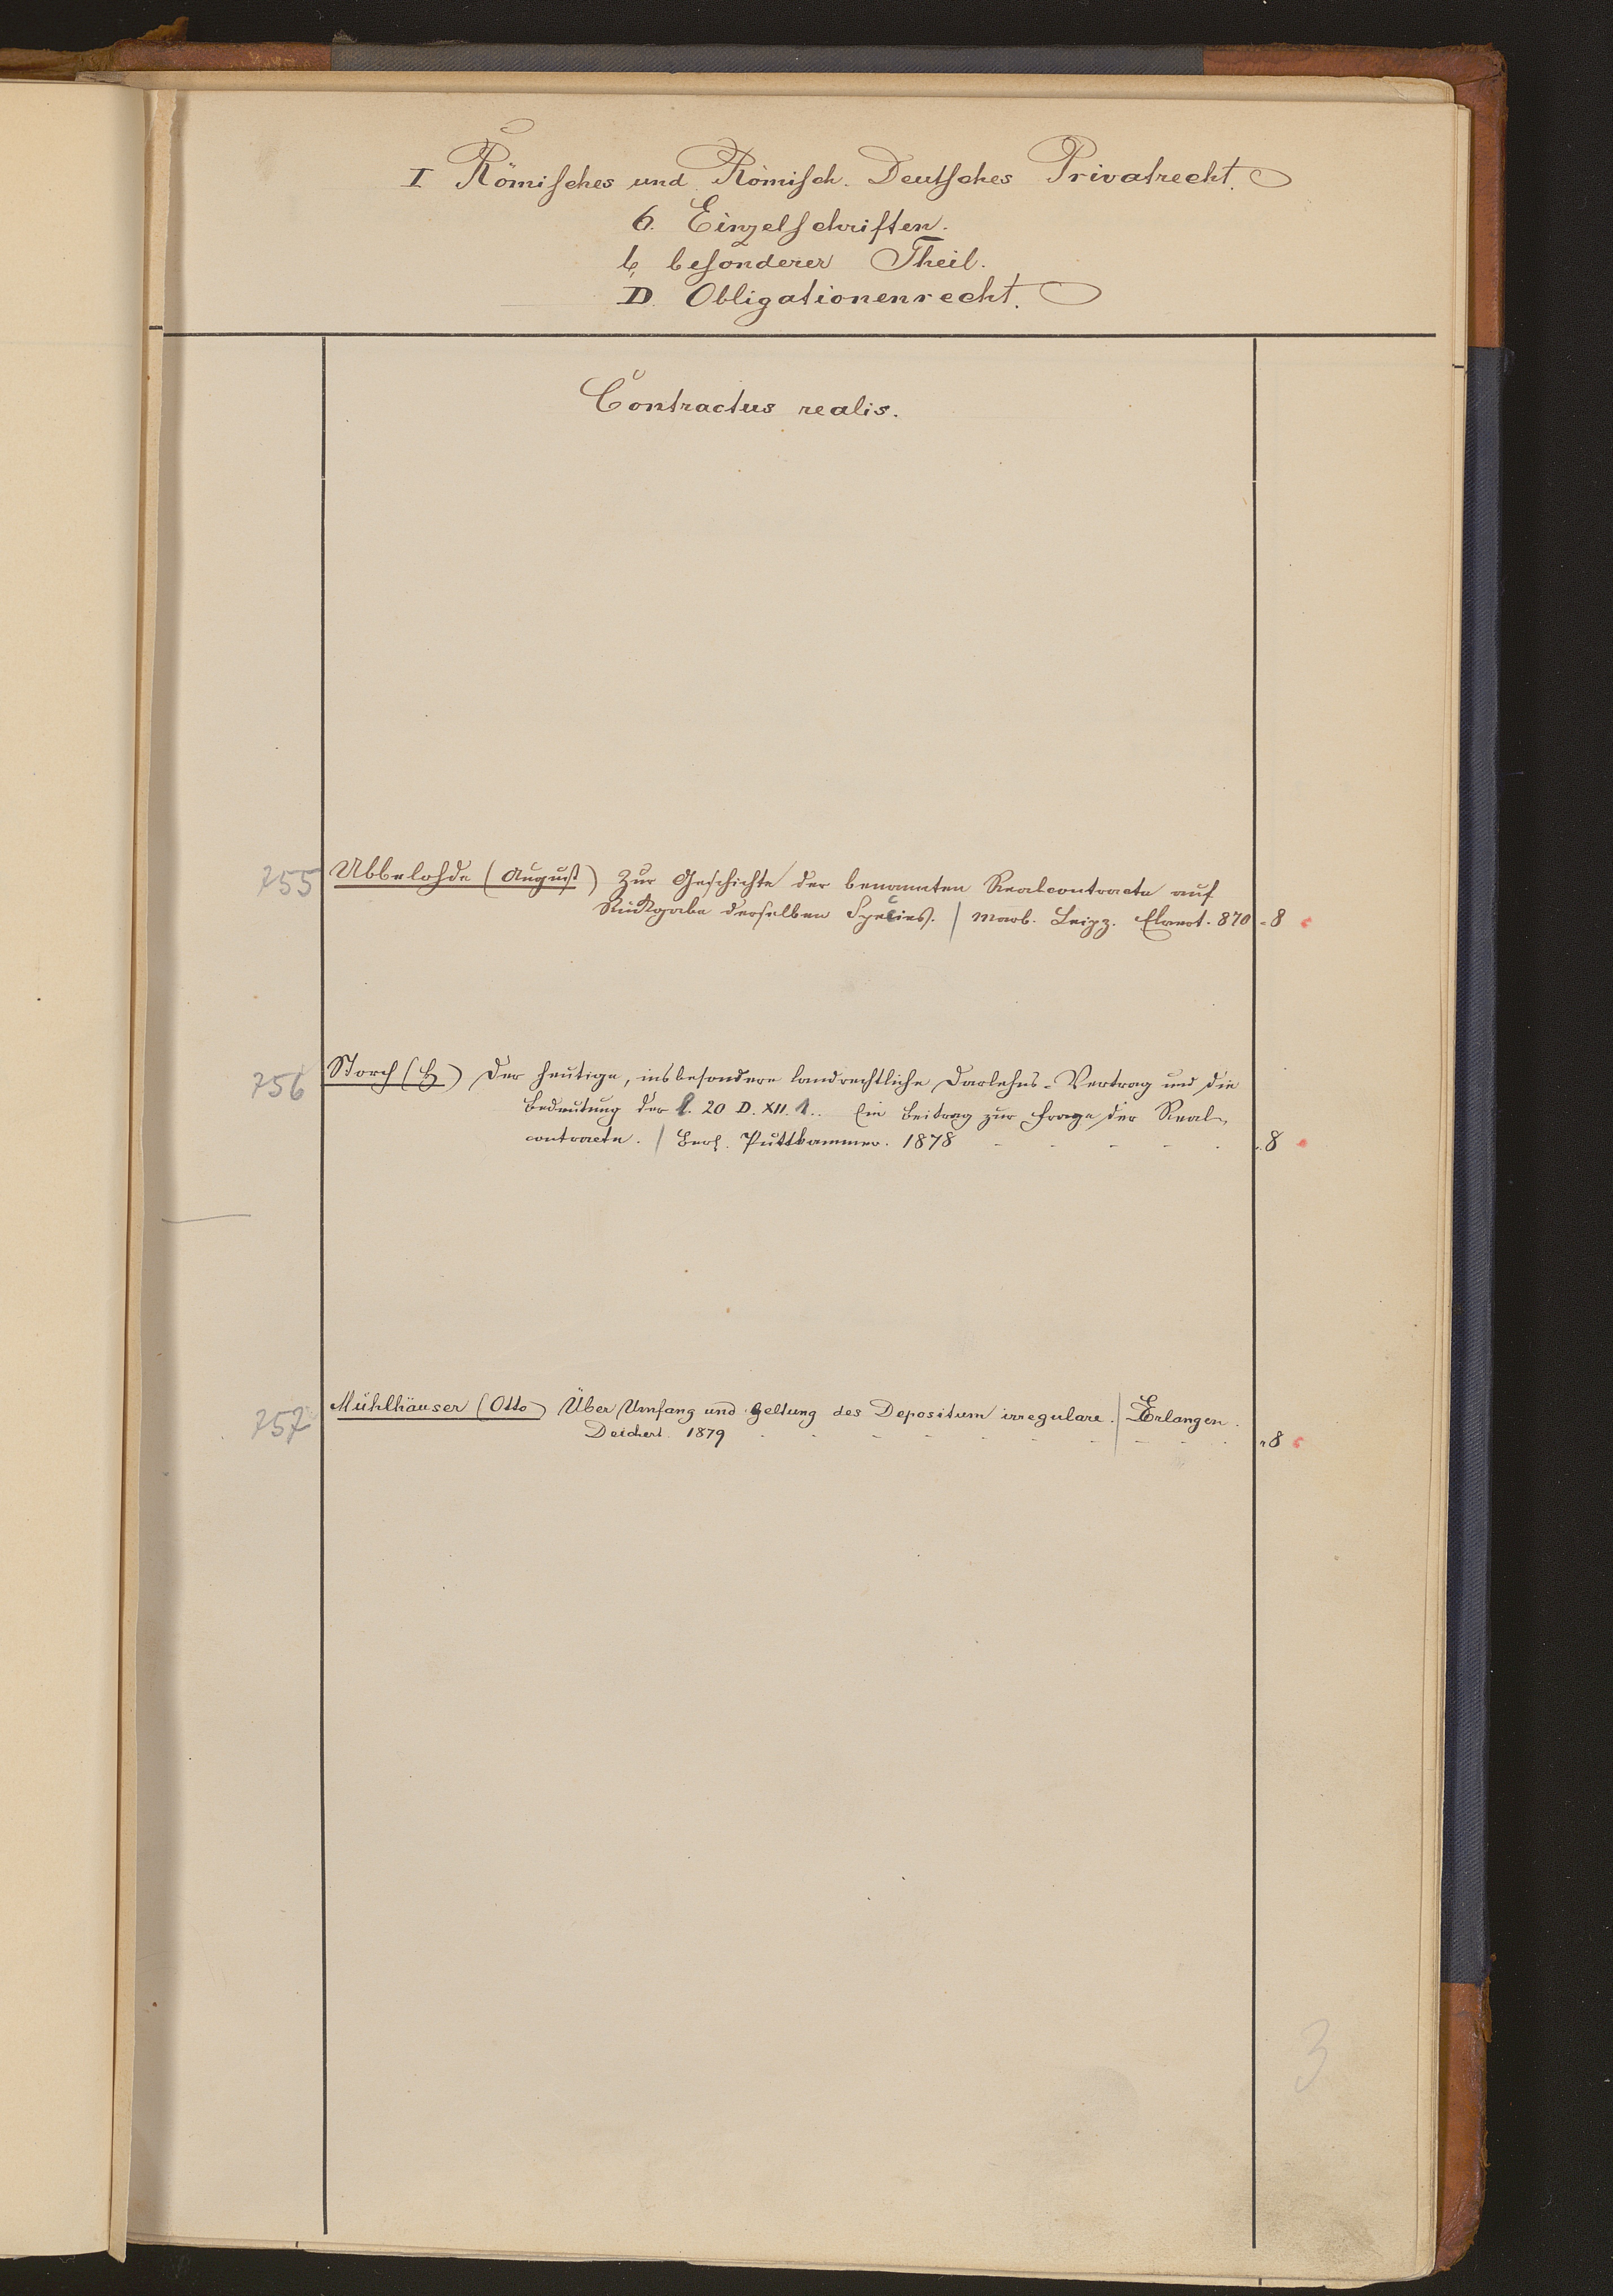 I Römisches und Römisch-Deutsches Privatrecht.
6. Einzelschriften.
b, besonderer Theil.
D. Obligationenrecht.
Contractus realis.
755 Ubbelohde (August) Zur Geschichte der benannten Realcontracte auf
Rückgabe derselben Species. / Marb. Leipz. Elwert. 870 - 8
756 Storch (H) Der heutige, insbesondere landrechtliche Darlehns-Vertrag und die
Bedeutung der l. 20 D. XII. 1.. Ein Beitrag zur Frage der Real-
contracte. / Berl. Puttkammer. 1878 - - - - - 8
757 Mühlhäuser (Otto) Über Umfang und Geltung des Depositum irregulare. / Erlangen.
Deichert 1879 - - - - - - - - - 8
3